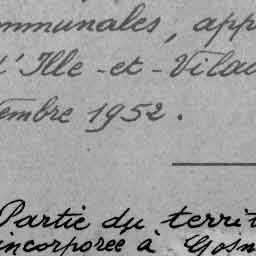 ommunales, app
l'Ille-et-Vilai
embre 1952.
Partie du territ
incorporée à Gosn